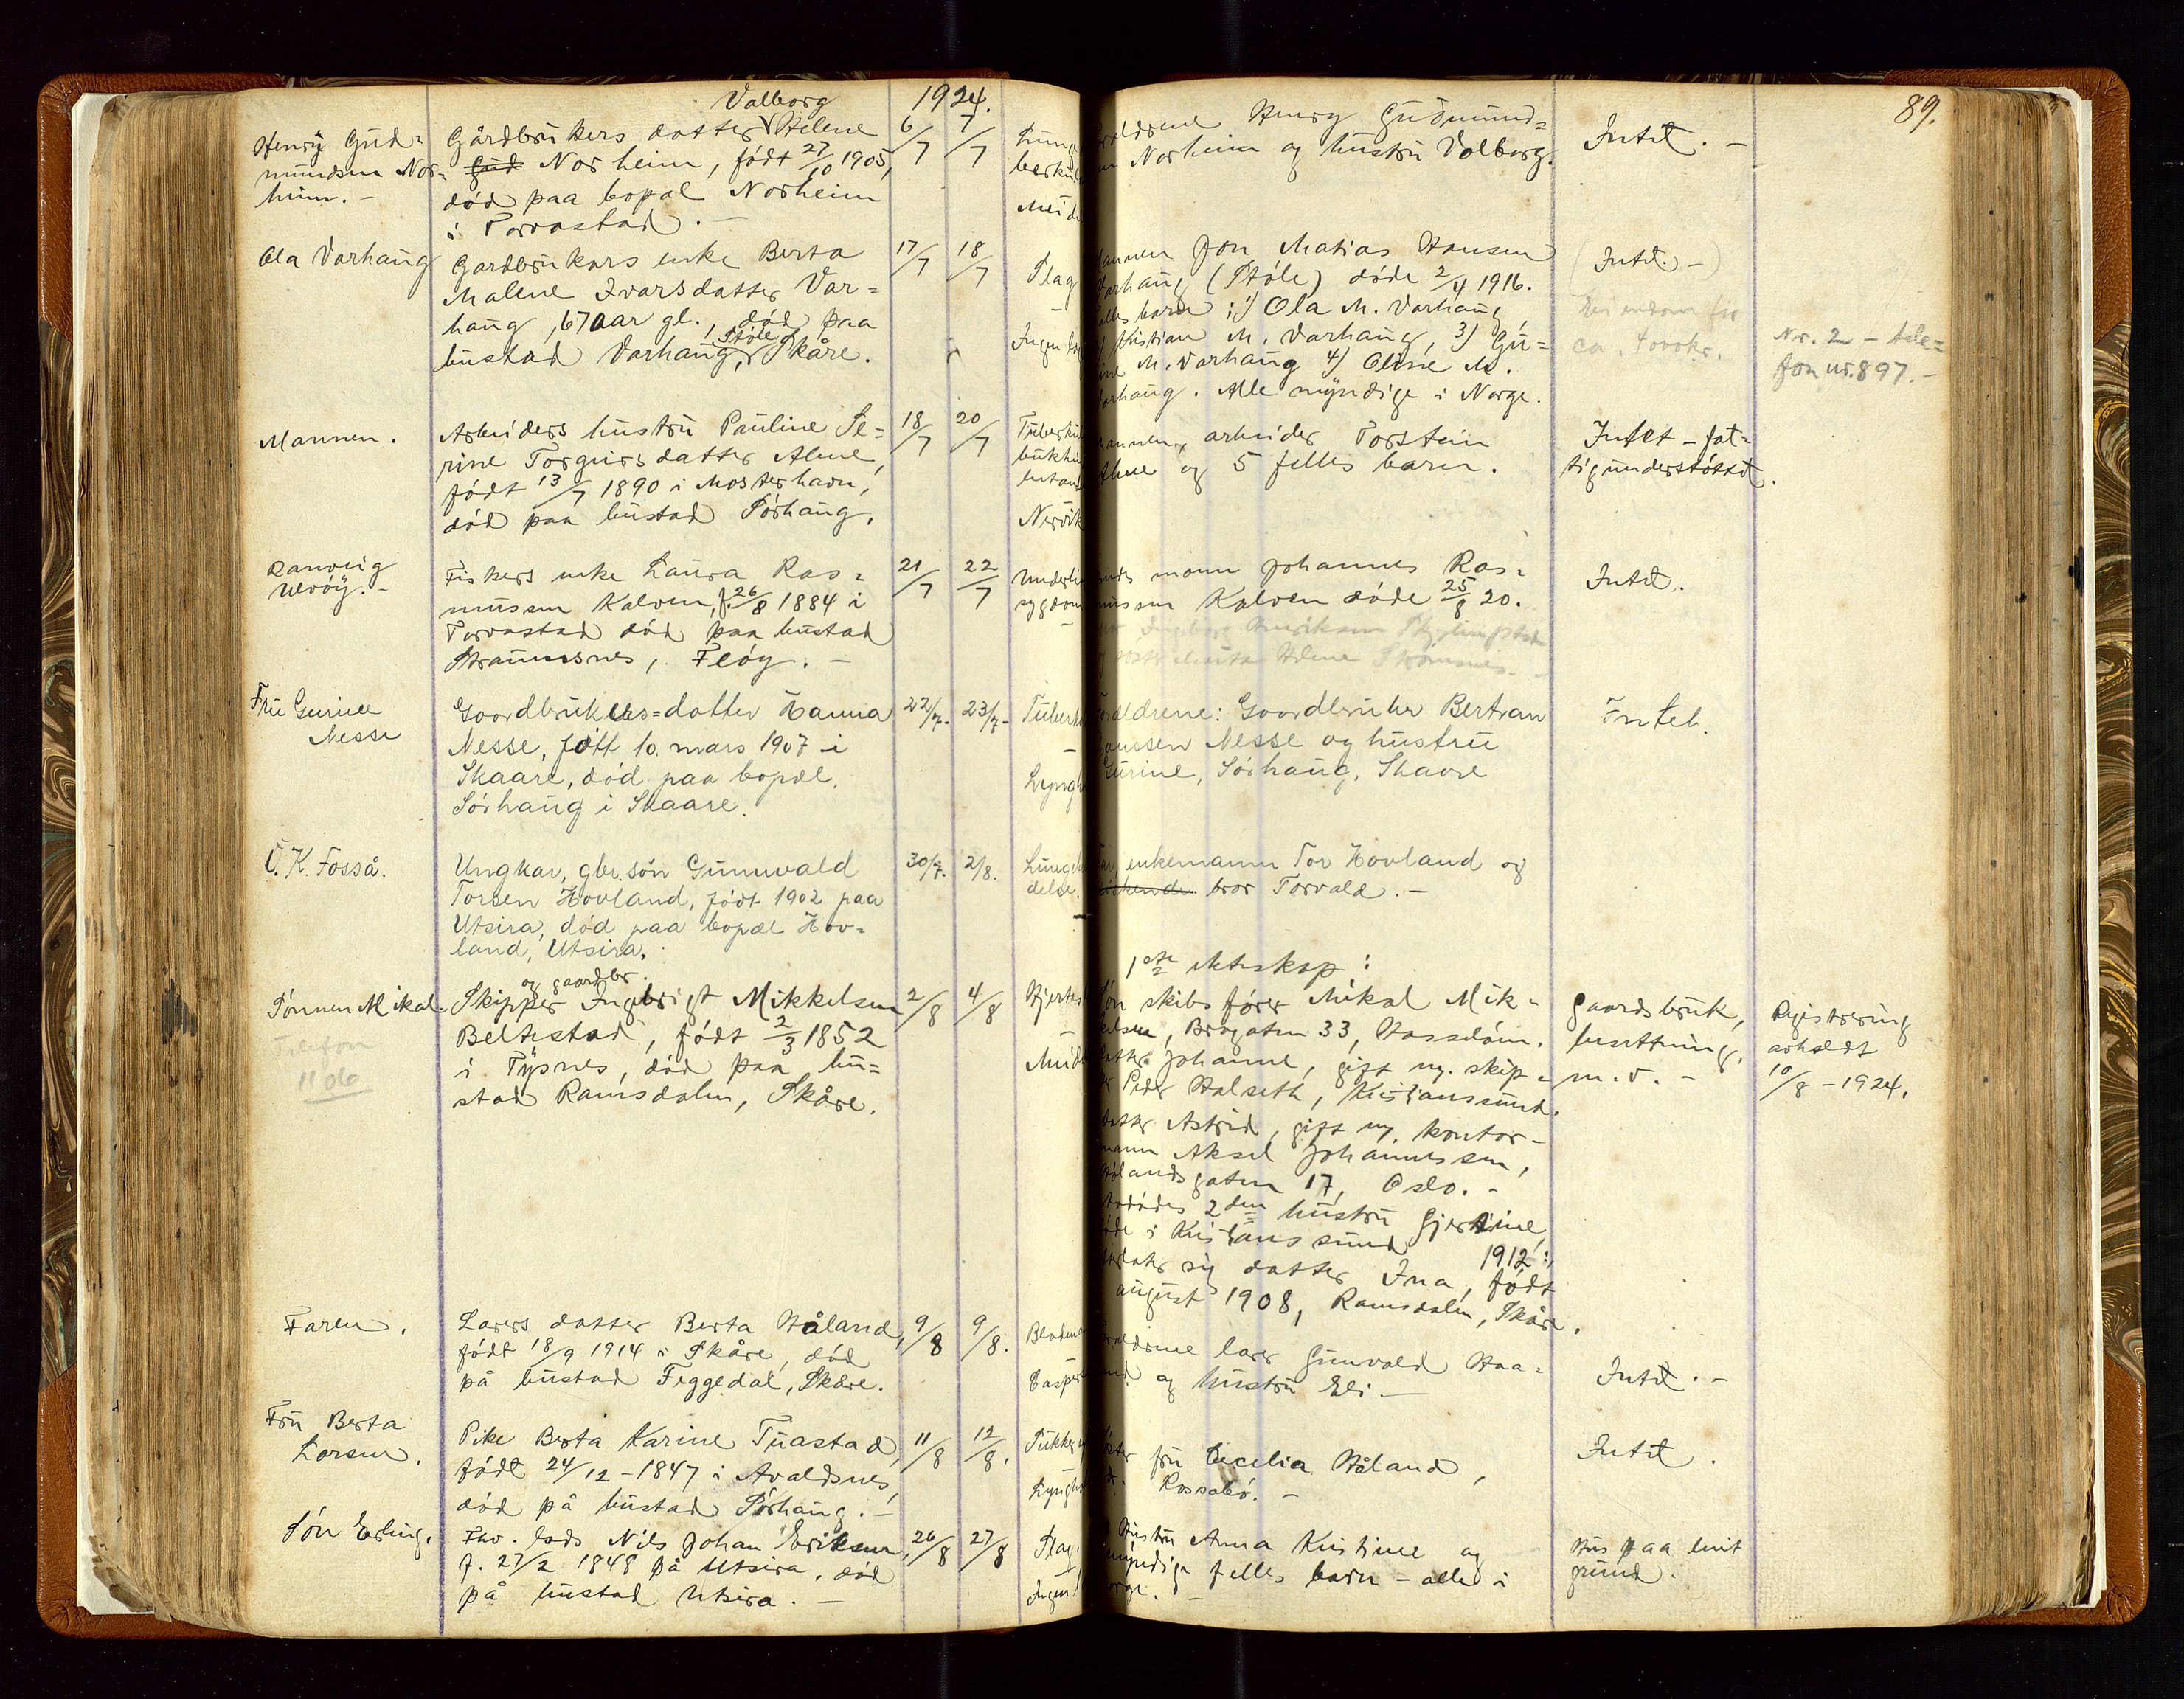 1924.
89.
Henry Gud=
mundsen Nor=
heim. -
Valborg
Gårdbrukers datter Helene
Gud Norheim, født 27/10 1905,
død paa bopæl Norheim
i Torvastad. -
6/7
7/7
Lung
berku
Mei
Henry Gudmund=
Norheim og hustru Valborg.
Intet. -
Ola Varhaug
Gardbrukars enke Berta
Malene Ivarsdatter Var=
haug, 67 aar gl., død paa
bustad Varhaug, Støle, Skåre.
17/7
18/7
Slag
-
Ingen
Jon Matias Hansen
Varhaug (Støle) døde 2/4 1916.
barn: 1) Ola M. Varhaug,
Kristian M. Varhaug, 3) Gu=
M. Varhaug 4) Oline M.
Varhaug. Alle myndige i Norge.
(Intet. -)
Eiendom for
ca. 4000 kr.
Nr. 2 - tele=
fon nr. 897. -
Mannen.
Arbeiders hustru Pauline Se=
rine Torgeirsdatter Alne,
født 13/7 1890 i Mosterhavn,
død paa bustad Sørhaug.
18/7
20/7
Tuberku
bukhin
Nervik
mannen, arbeider Torstein
Alne og 5 felles barn.
Intet - fat=
tigunderstøttet.
Ranveig
Utvöy. -
Fiskers enke Laura Ras=
mussen Kalven, f. 26/8 1884 i
Torvastad død paa bustad
Straumsnes, Fløy. -
21/7
22/7
Underli
sygdom
-
mann Johannes Ras=
mussen Kalven døde 25/8 20.
Ingeborg Henriksen
Intet.
Fru Gurine
Nesse
Goardbrukers=datter Hanna
Nesse, født 10. mars 1907 i
Skaare, død paa bopæl,
Sørhaug i Skaare.
22/7.
23/7-
Tuberku
-
Lyngh
Forældrene: Goardbruker Bertran
Nesse og hustru
Gurine, Sørhaug, Skaare
Intet.
O. K. Fosså.
Ungkar, gbr. søn Gunnvald
Torsen Hovland, født 1902 paa
Utsira, død paa bopæl Hov=
land, Utsira.
30/7.
2/8.
Lunge
delse.
Far, enkemann Tor Hovland og
bror Torvald. -
Sønnen Mikal.
Telefon
1106
og gaardbr.
Skipper Ingebrigt Mikkelsen
Beltestad, født 2/3 1852
i Tysnes, død paa bu=
stad Ramsdalen, Skåre.
2/8
4/8
Hjertes
-
1ste ekteskap:
Søn skibsfører Mikal Mik=
kelsen, Brogaten 33, Hasseløen.
datter Johanne, gift m. skip=
Peder Halseth, Kristianssund.
datter Astrid, gift m. kontor-
mann Aksel Johannessen,
gaten 17, Oslo. -
2den hustru Gjertine
døde i Kristianssund 1912:
sig datter Ina, født
august 1908, Ramsdalen, Skåre.
gaardsbruk,
besetning,
m.v. -
Registrering
avholdt
10/8 - 1924.
Faren.
Lærers datter Berta Håland,
født 18/9 1914 i Skåre, død
på bustad Feggedal, Skåre.
9/8
9/8.
Blodman
Casper
lærer Gunvald Haa=
land og hustru Eli -
Intet. -
Fru Berta
Larsen.
Pike Berta Karine Tuastad,
født 24/12 - 1847 i Avaldsnes,
død på bustad Sørhaug. -
11/8
12/8.
Lyngh
fru Cecelia Håland,
Rossabø. -
Intet.
Søn Erling.
Fhv. lods Nils Johan Eriksen,
f. 27/2 1848 på Utsira, død
på bustad Utsira. -
26/8
27/8
Slag.
Ingen
Hustru Anna Kristine og
myndige felles barn - alle i
Norge. -
Hus paa leiet
grund.